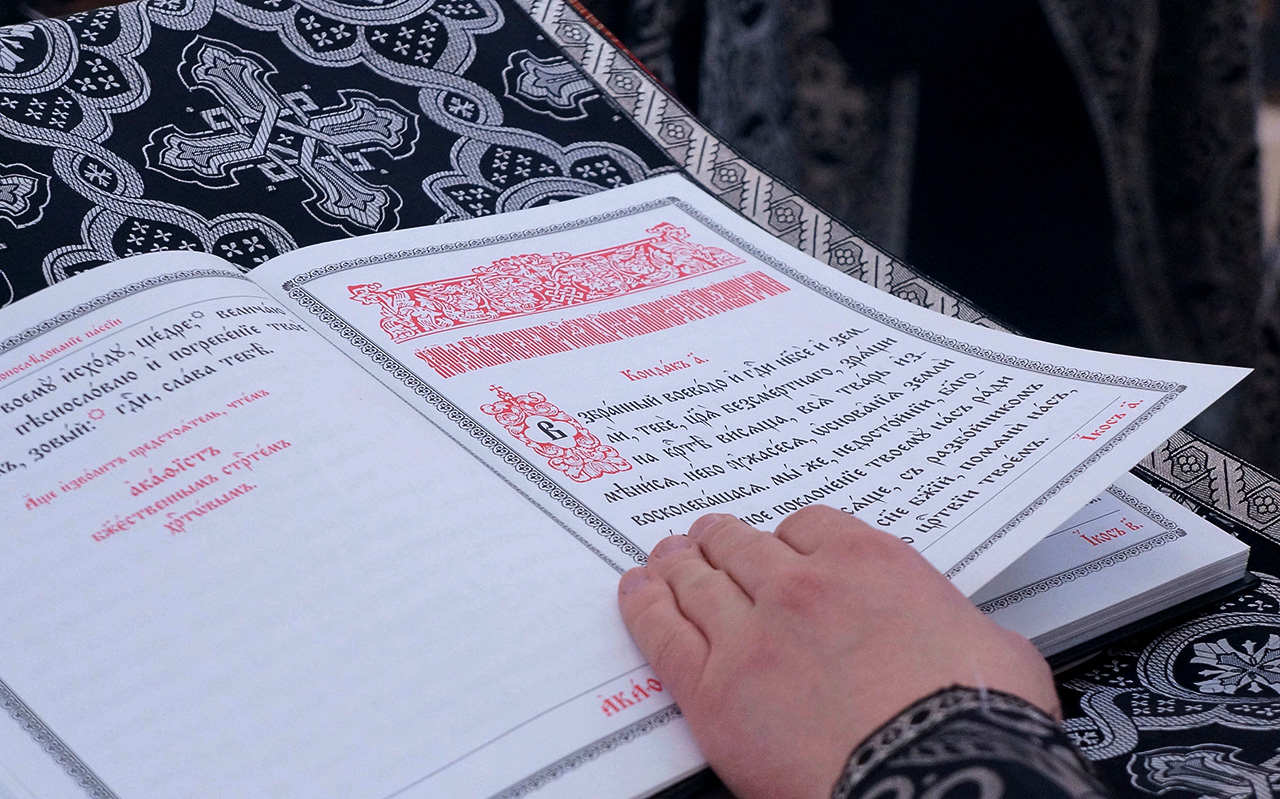 воемꙋ̀ исхо́дꙋ, ще́дре, велича́ю
пѣсносло́влю и погребе́нїе твоѐ
зовы́й: гдⷭ҇и, сла́ва тебѣ̀.
А҆́ще изво́литъ предстоѧ́тель, чте́мъ
а҆ка́ѳїстъ
бжⷭ҇е́ственнымъ стрⷭ҇те́мъ
хрⷭ҇то́вымъ.
Конда́къ а҃.
Взбра́нный воево́до и҆ гдⷭ҇и нб҃сѐ и҆ зем-
лѝ, тебѐ, цр҃ѧ̀ безсме́ртнаго, зрѧ́щи
на крⷭ҇тѣ̀ ви́сѧща, всѧ̀ тва́рь и҆з-
мѣни́сѧ, не́бо ᲂу҆жасе́сѧ, ѡ҆снова̑нїѧ землѝ
восколеба́шасѧ. мы́ же, недосто́йнїи, бл҃го-
ное поклоне́нїе твоемꙋ̀ на́съ ра́ди
са́ще, съ разбо́йникомъ
сн҃е бж҃їй, помѧнѝ на́съ,
цр҃твїи твое́мъ.
І҆́косъ а҃.
І҆́косъ в҃.